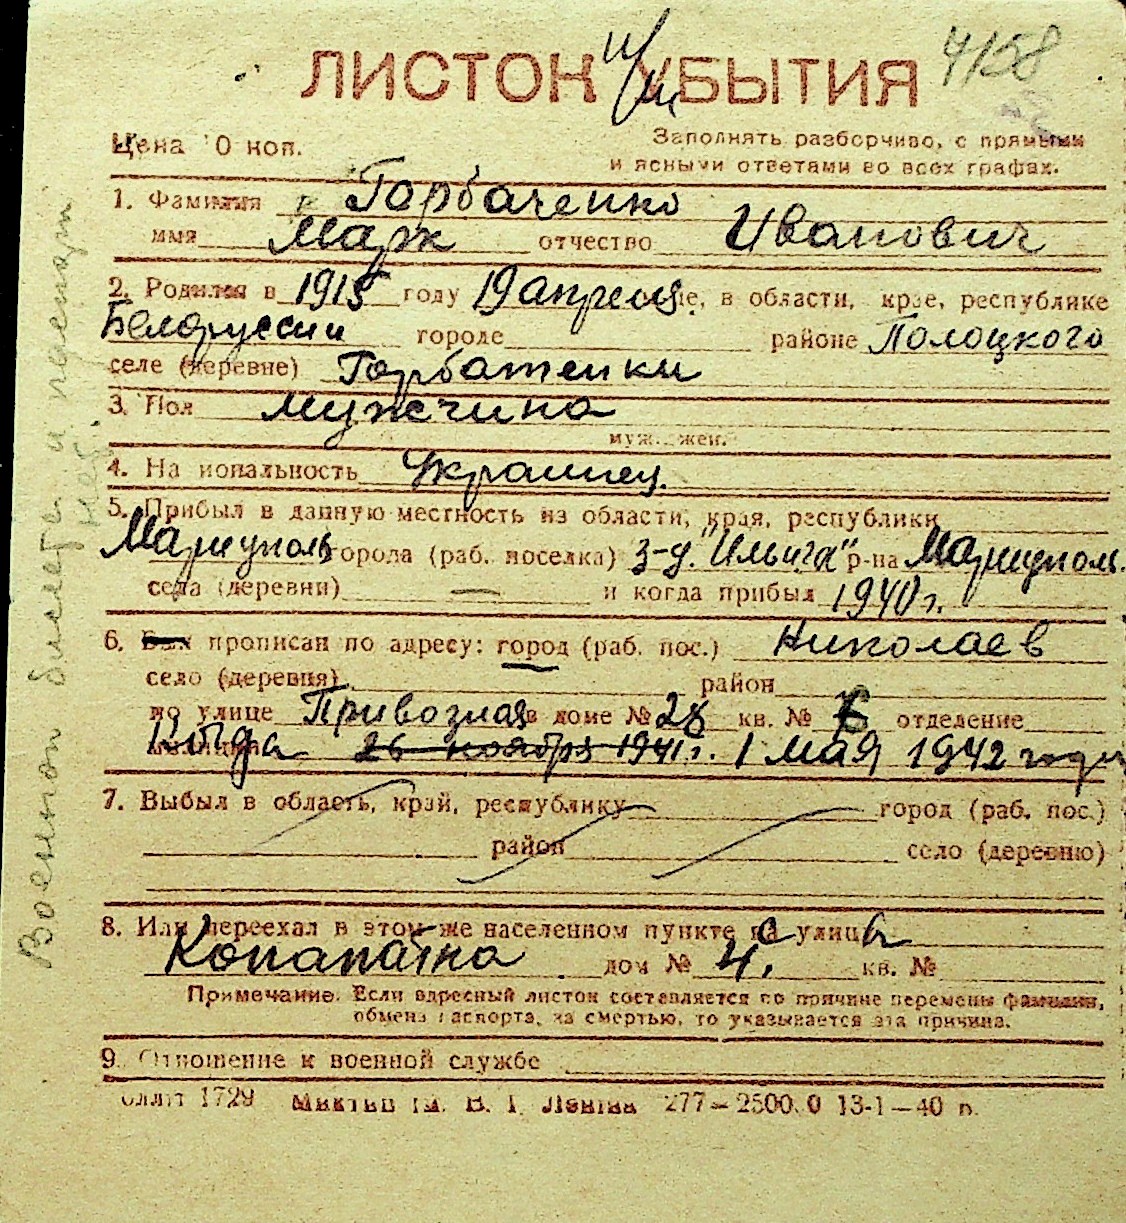 4/158
ЛИСТОК УБЫТИЯ
Цена 10 коп.
Заполнять разборчиво, с прямыми
и ясными ответами во всех графах.
1. Фамилия Горбаченко
имя Марк отчество Иванович
2. Родился в 1915 году 19 апреля, в области, крае, республике
Белоруссии городе районе Полоцкого
селе (деревне) Горбатенки
3. Пол мужчина
муж. жен.
4. Национальность Украинец.
5. Прибыл в данную местность из области, края, республики
Мариуполь города (раб. поселка) з-д. "Ильича" р-на Мариуполь.
села (деревни) — и когда прибыл 1940 г.
6. Был прописан по адресу: город (раб. пос.) Николаев
село (деревня) район
по улице Привозная в доме № 28 кв. № отделение
Когда 26 ноября 1941 г. 1 мая 1942 года
7. Выбыл в область, край, республику город (раб. пос.)
район село (деревню)
8. Или переехал в этом же населенном пункте на улицу
дом № 4, кв. №
Примечание. Если адресный листок составляется по причине перемены фамилии,
обмена паспорта, за смертью, то указывается эта причина.
9. Отношение к военной службе
1729 277—2500.0 13-1—40 г.
Военного билета и паспорта
нет.